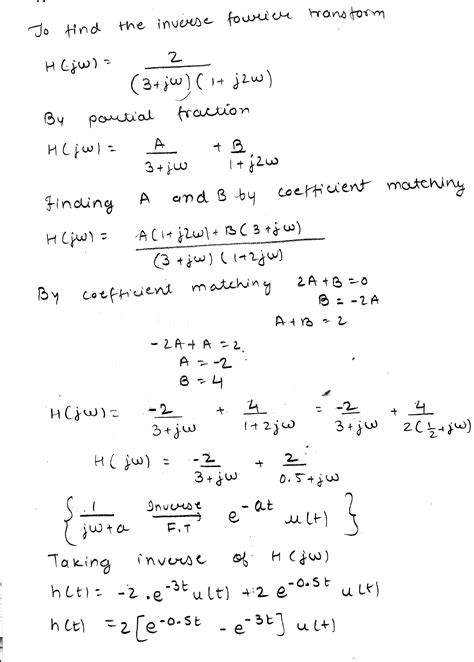 To find the inverse fourier transform
H(jω) = 2 / (3+jω)(1+j2ω)
By partial fraction
H(jω) = A / 3+jω + B / 1+j2ω
Finding A and B by coefficient matching
H(jω) = A(1+j2ω)+B(3+jω) / (3+jω)(1+2jω)
By coefficient matching 2A+B=0
B = -2A
A+B = 2
-2A+A = 2
A = -2
B = 4
H(jω) = -2 / 3+jω + 4 / 1+2jω = -2 / 3+jω + 4 / 2(1/2+jω)
H(jω) = -2 / 3+jω + 2 / 0.5+jω
{ 1 / jω+a Inverse → F.T e^-at u(t) }
Taking inverse of H(jω)
h(t) = -2.e^-3t u(t) + 2 e^-0.5t u(t)
h(t) = 2[e^-0.5t - e^-3t] u(t)